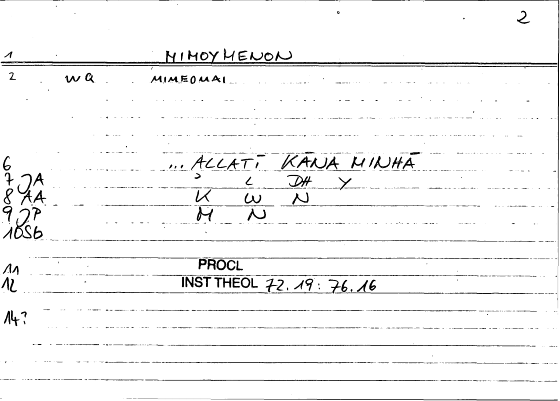 2
1 MIMOYMENON
2 WQ MIMEOMAI
6 ... ALLATĪ KĀNA MINHĀ
7 JA ʾ L DH Y
8 AA K W N
9 JP M N
10 Sb
11 PROCL
12 INST THEOL 72.19: 76.16
14?